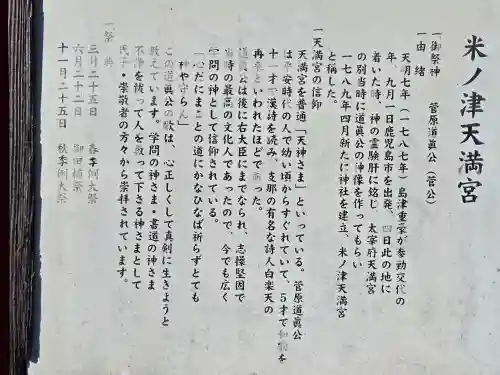 米ノ津天満宮
一御祭神　菅原道真公（菅公）
一由緒
天明七年（一七八七年）島津重豪が参勤交代の
年、九月一日鹿児島市を出発、四日此の地に
着いた時、神の霊験肝に銘じ、太宰府天満宮
の別当時に道真公の神像を作ってもらい
一七八九年四月新たに神社を建立、米ノ津天満宮
と称した。
一天満宮の信仰
天満宮を普通「天神さま」といっている。菅原道真
は平安時代の人で幼い頃からすぐれていて、５才で和歌を
十一才で漢詩を読み、支那の有名な詩人白楽天の
再来といわれたほどであった。
道真公は後に右大臣にまでなられ、志操堅固で
当時の最高の文化人であったので、今でも広く
学問の神として信仰されている。
「心だにまことの道にかなひなば祈らずとても
神や守らん」
この道真公の歌は、心正しくして真剣に生きようと
教えています。学問の神さま・書道の神さま
不浄を祓って人を救って下さる神さまとして
氏子・崇敬者の方々から崇拝されています。
一祭典
三月二十五日　春季例大祭
六月二十二日　御田植祭
十一月二十五日　秋季例大祭